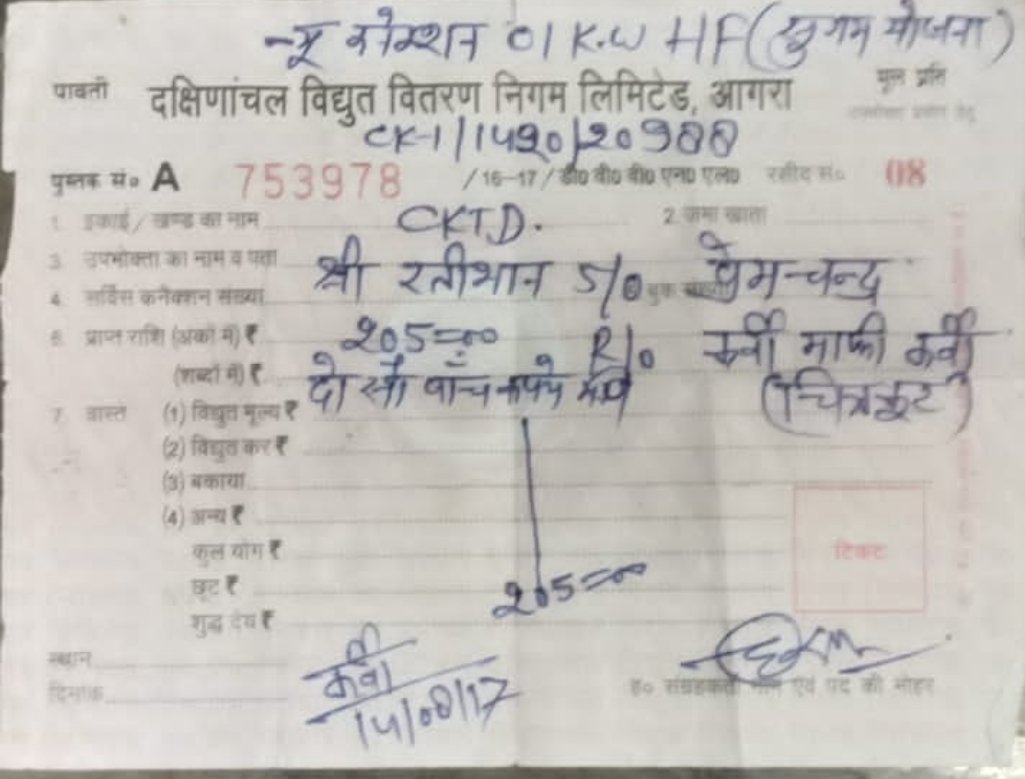 न्यू कनेक्शन 01 K.W HF (सुगम योजना)
पावती दक्षिणांचल विद्युत वितरण निगम लिमिटेड, आगरा मूल प्रति
CK-1/1420/20988
पुस्तक सं० A 753978 /16-17/ डी० वी० वी० एन० एल० रसीद सं० 08
1. इकाई / खण्ड का नाम CKTD. 2. जमा खाता
3. उपभोक्ता का नाम व पता श्री रतीभान S/o प्रेमचन्द्र
4. सर्विस कनैक्शन संख्या
6. प्राप्त राशि (अंकों में) ₹ 205=00 R/o कर्वी माफी कर्वी
(शब्दों में) ₹ दो सौ पाँच रूपये मात्र (चित्रकूट)
7. वास्ते (1) विद्युत मूल्य ₹
(2) विद्युत कर ₹
(3) बकाया
(4) अन्य ₹
कुल योग ₹ टिकट
छूट ₹ 205=00
शुद्ध देय ₹
स्थान कर्वी
दिनांक 14/08/17 ह० संग्रहकर्ता नाम एवं पद की मोहर